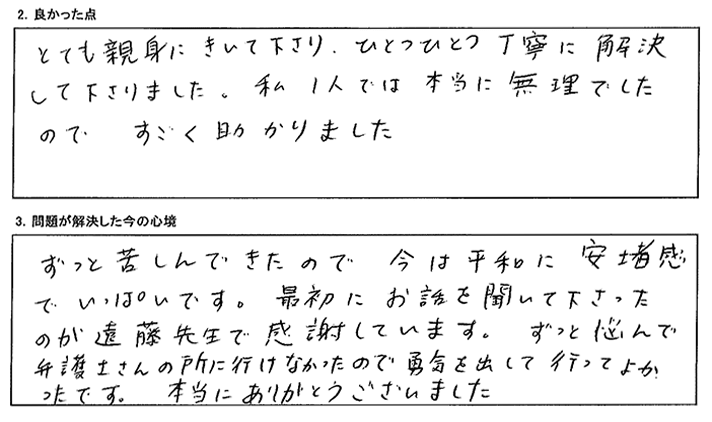 2. 良かった点
とても親身にきいて下さり、ひとつひとつ丁寧に解決
して下さりました。私1人では本当に無理でした
ので すごく助かりました
3. 問題が解決した今の心境
ずっと苦しんできたので 今は平和に安堵感
でいっぱいです。最初にお話を聞いて下さった
のが遠藤先生で感謝しています。ずっと悩んで
弁護士さんの所に行けなかったので勇気を出して行ってよか
ったです。 本当にありがとうございました